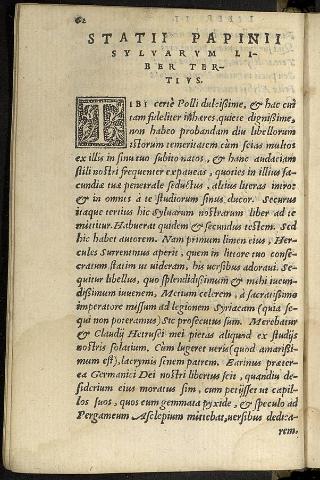 62
STATII PAPINII
SYLVARVM LI-
BER TER-
TIVS.
TIBI certè Polli dulcißime, & hac cui
tam fideliter inhæres, quiete dignißime,
non habeo probandam diu libellorum
istorum temeritatem, cùm scias multos
ex illis in sinu tuo subito natos, & hanc audaciam
stili nostri frequenter expaueas, quoties in illius fa-
cundiæ tuæ penetrale seductus, altius literas intro:
& in omnes à te studiorum sinus ducor. Securus
itaque tertius hic Syluarum nostrarum liber ad te
mittitur. Habuerat quidem & secundus testem. Sed
hic habet autorem. Nam primum limen eius, Her-
cules Surrentinus aperit, quem in littore tuo conse-
cratum statim ut uideram, his uersibus adoraui. Se-
quitur libellus, quo splendidißimum & mihi iucun-
dißimum iuuenem, Metium celerem, à sacratißimo
imperatore missum ad legionem Syriacam (quia se-
qui non poteramus) Sic prosecutus sum. Merebatur
& Claudij Hetrusci mei pietas aliquod ex studijs
nostris solatium, Cùm lugeret ueris (quod amarißi-
mum est), lacrymis senem patrem. Earinus præter-
ea Germanici Dei nostri libertus scit, quandiu de-
siderium eius moratus sim, cum petijsset ut capil-
los suos, quos cum gemmata pyxide, & speculo ad
Pergameum Asclepium mittebat, uersibus dedica-
rem.